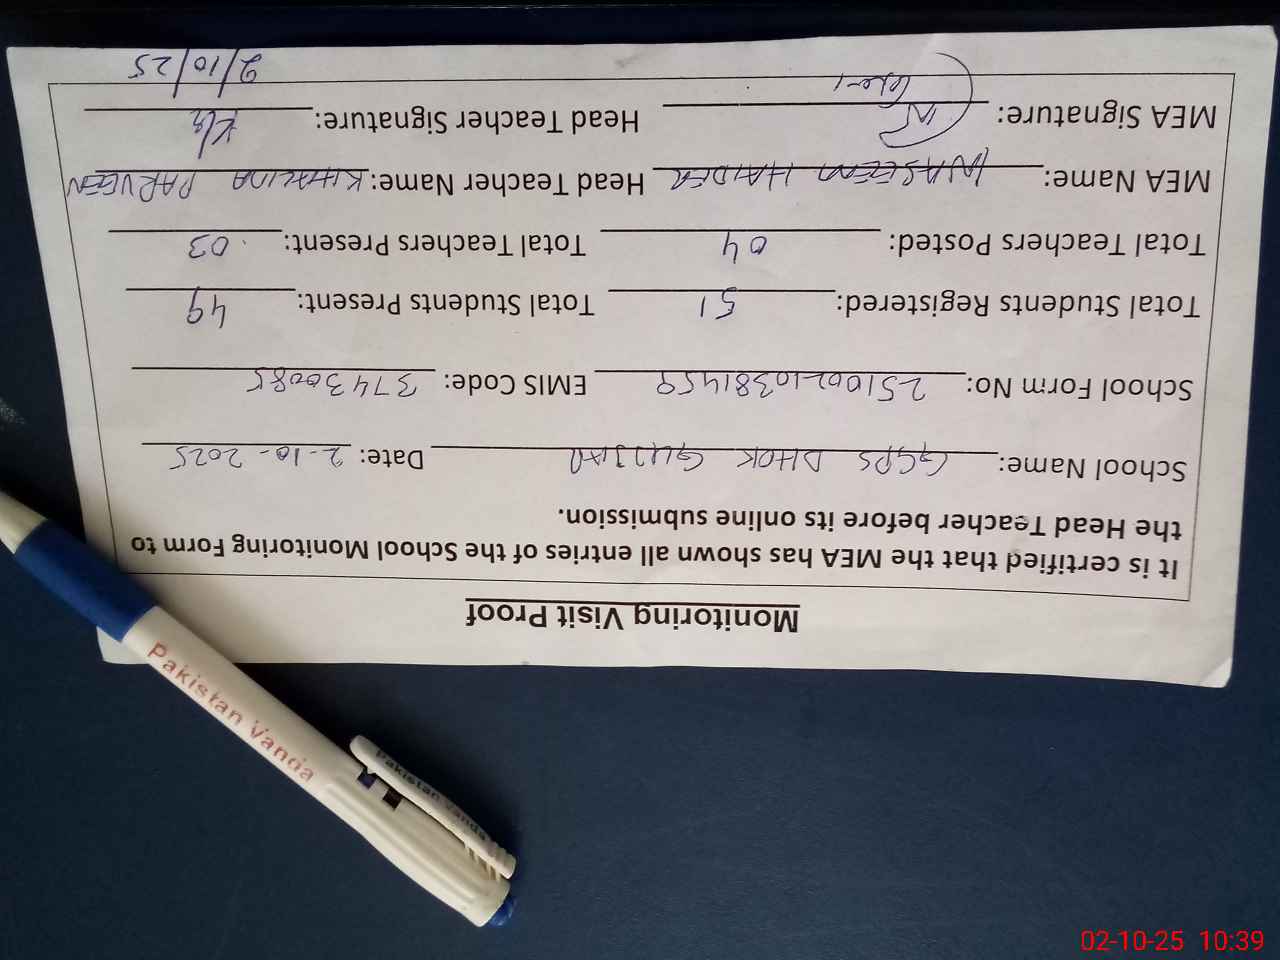 Monitoring Visit Proof
It is certified that the MEA has shown all entries of the School Monitoring Form to
the Head Teacher before its online submission.
School Name: GGPS DHOK GUJJAR Date: 2-10-2025
School Form No: 25100210381459 EMIS Code: 37430085
Total Students Registered: 51 Total Students Present: 49
Total Teachers Posted: 04 Total Teachers Present: 03
MEA Name: WASEEM HAIDER Head Teacher Name: KHALIDA PARVEEN
MEA Signature: Head Teacher Signature:
2/10/25
Pakistan Vanda
Pakistan Vanda
02-10-25 10:39